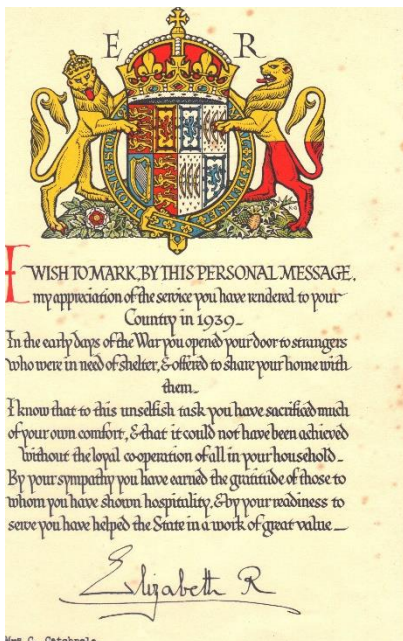 E R
HONI SOIT
I WISH TO MARK, BY THIS PERSONAL MESSAGE,
my appreciation of the service you have rendered to your
Country in 1939_
In the early days of the War you opened your door to strangers
who were in need of shelter, & offered to share your home with
them_
I know that to this unselfish task you have sacrificed much
of your own comfort, & that it could not have been achieved
without the loyal co-operation of all in your household_
By your sympathy you have earned the gratitude of those to
whom you have shown hospitality, & by your readiness to
serve you have helped the State in a work of great value_
Elizabeth R
Mrs C.